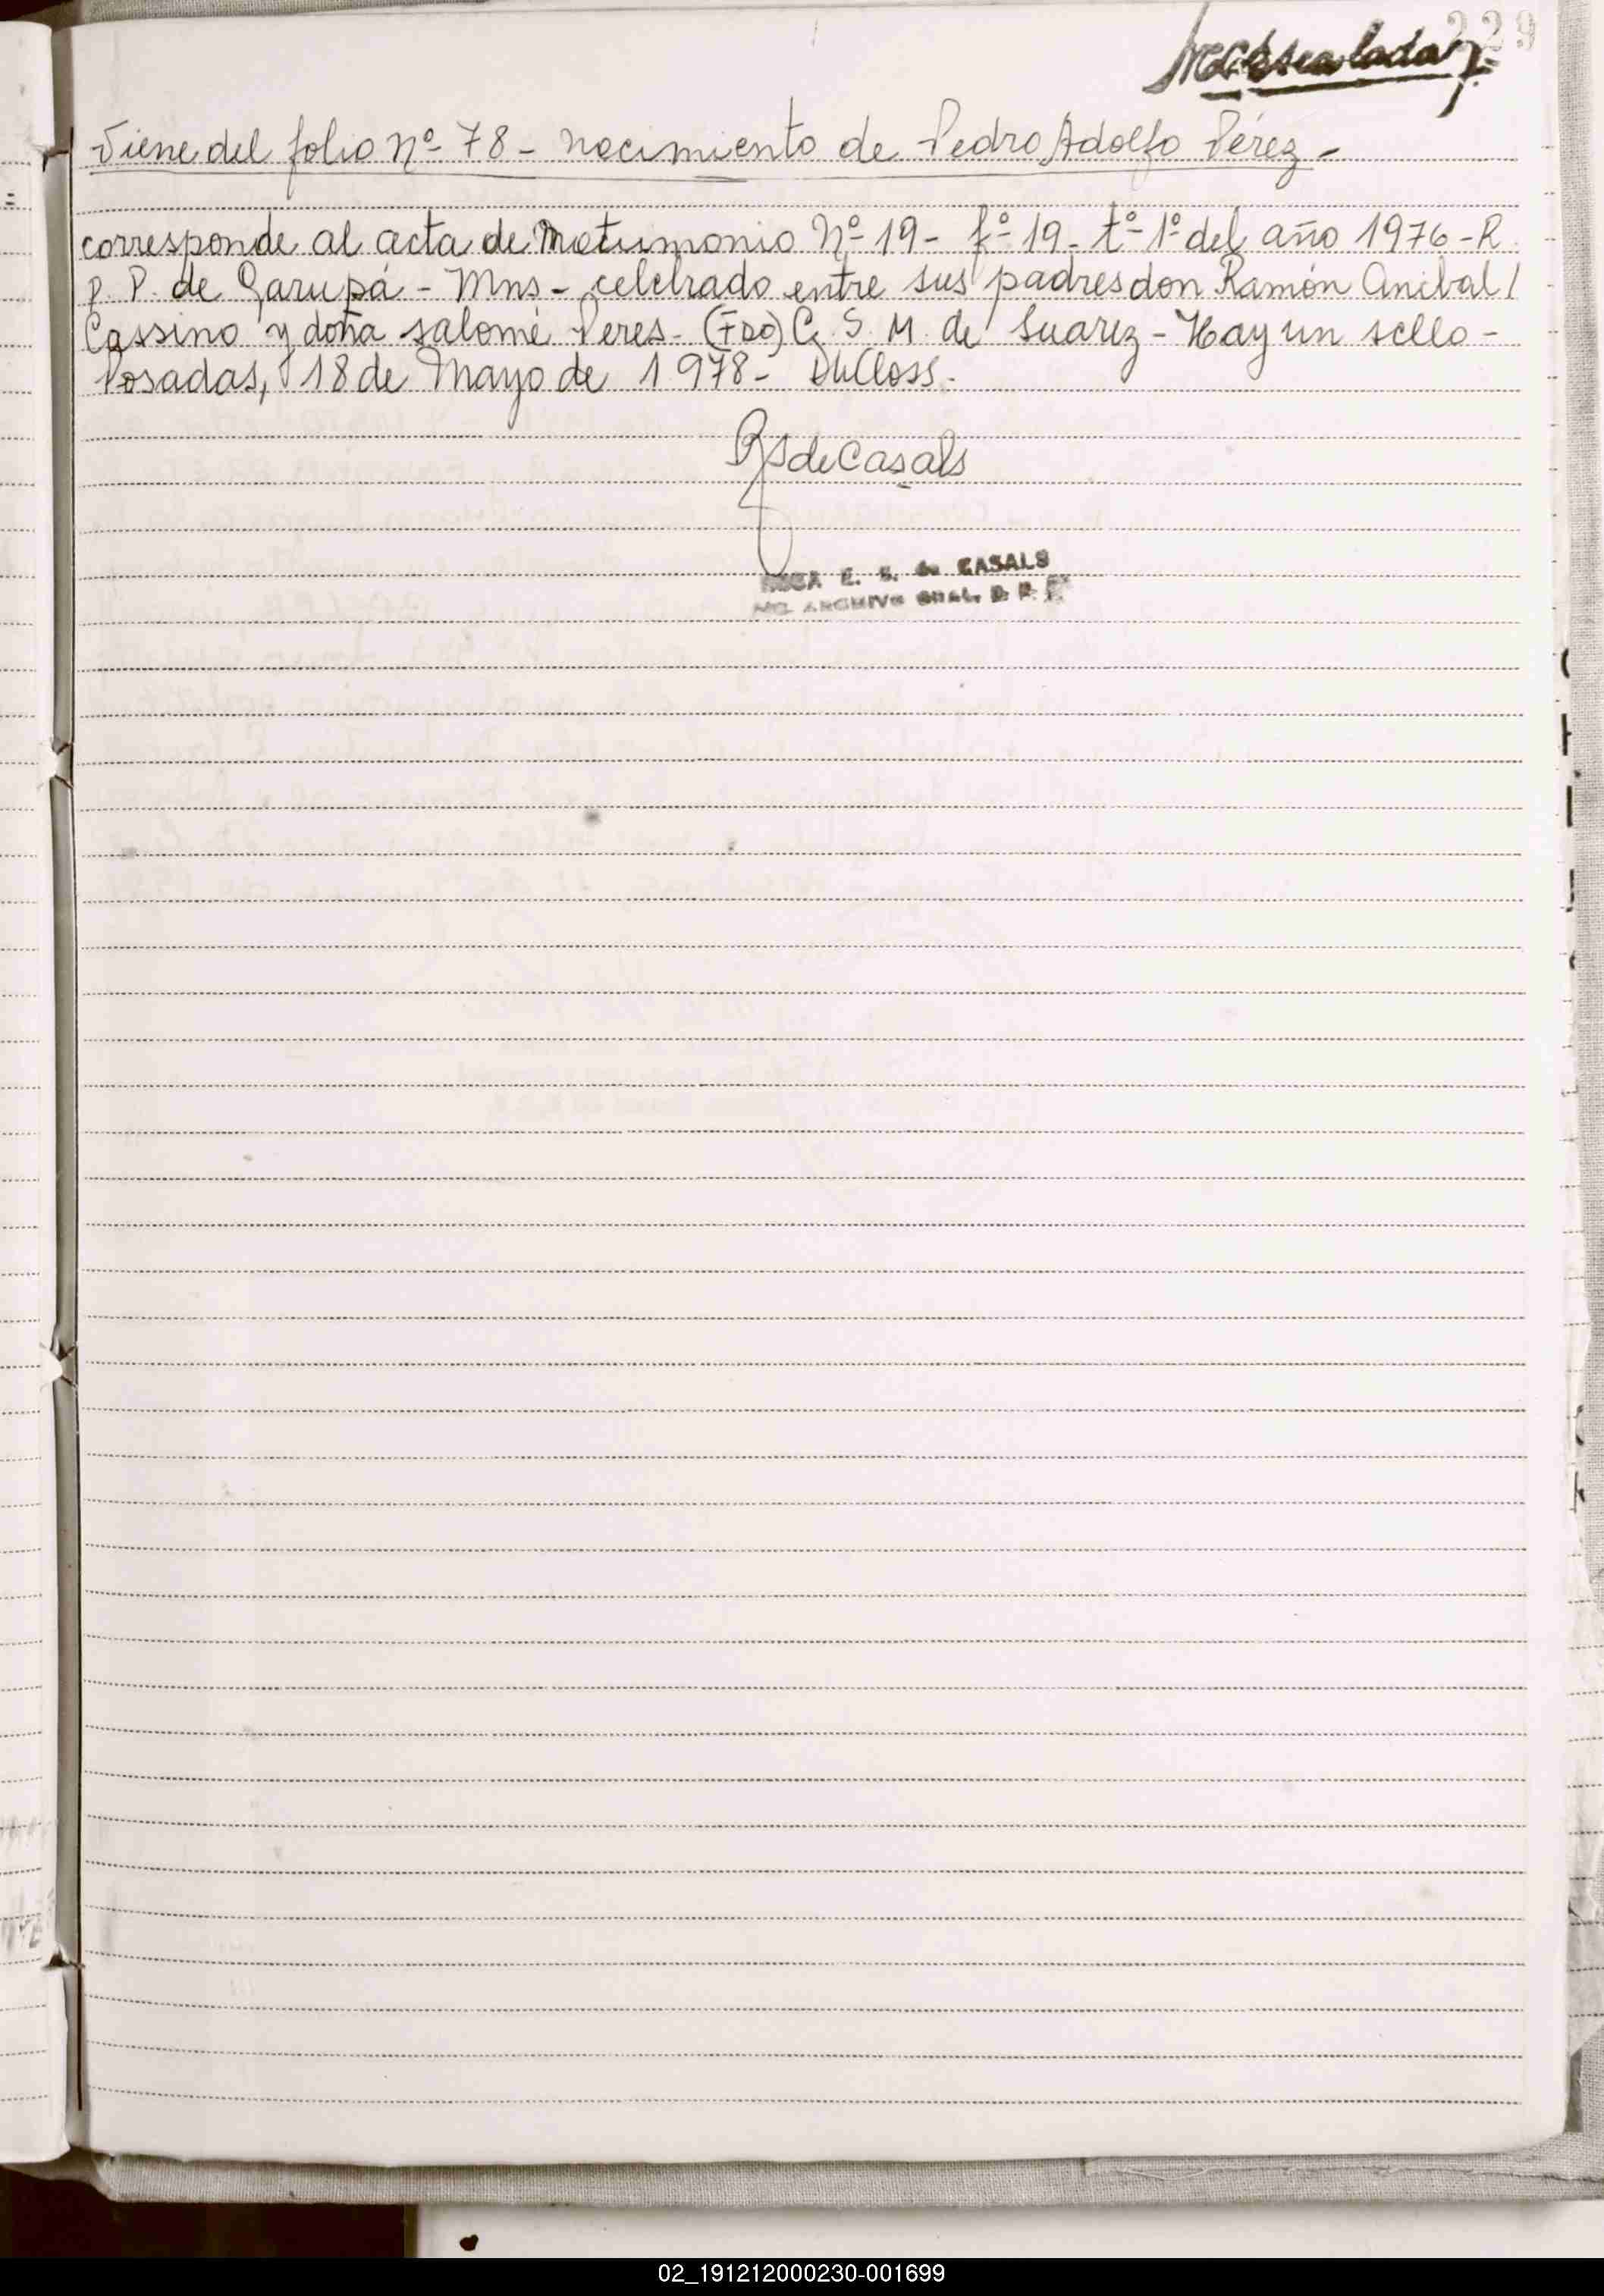 229
Viene del folio Nº 78 - nacimiento de Pedro Adolfo Pérez -
corresponde al acta de Matrimonio Nº 19 - fº 19 - tº 1º del año 1976 - R.
P. P. de Garupá - Mns - celebrado entre sus padres don Ramón Anibal /
Cassino y doña Salomé Peres - (FDO) C. S. M. de Suarez - Hay un sello -
Posadas, 18 de Mayo de 1978 -
RSdeCasals
E. S. de CASALS
ARCHIVO GRAL. D. R. P.
02_191212000230-001699